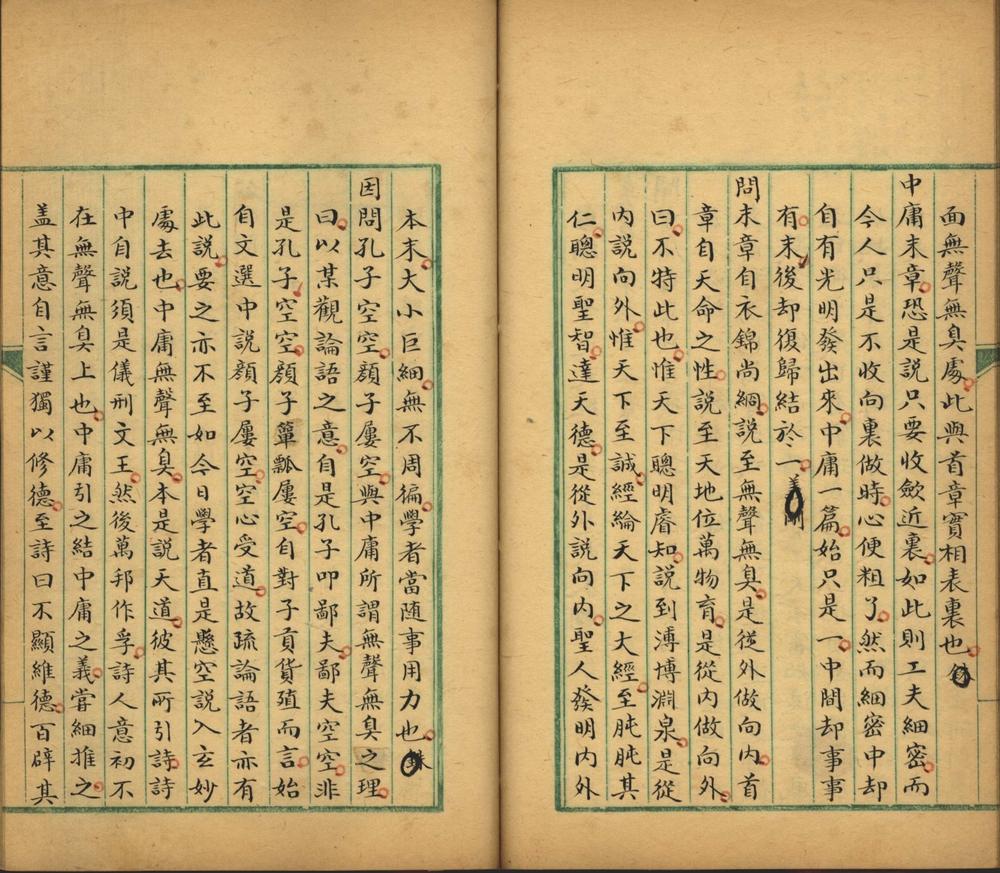 面無聲無臭處此與首章實相表裏也銖
中庸末章恐是說只要收斂近裏如此則工夫細密而
今人只是不收向裏做時心便粗了然而細密中却
自有光明發出來中庸一篇始只是一中間却事事
有末後却復歸結於一義剛
問末章自衣錦尚絅說至無聲無臭是從外做向內首
章自天命之性說至天地位萬物育是從內做向外
曰不特此也惟天下聰明睿知說到溥博淵泉是從
內說向外惟天下至誠經綸天下之大經至肫肫其
仁聰明聖智達天德是從外說向內聖人發明內外
本末大小巨細無不周徧學者當随事用力也銖
因問孔子空空顏子屢空與中庸所謂無聲無臭之理
曰以某觀論語之意自是孔子叩鄙夫鄙夫空空非
是孔子空空顏子簞瓢屢空自對子貢貨殖而言始
自文選中說顏子屢空空心受道故疏論語者亦有
此說要之亦不至如今日學者直是懸空說入玄妙
處去也中庸無聲無臭本是說天道彼其所引詩詩
中自說須是儀刑文王然後萬邦作孚詩人意初不
在無聲無臭上也中庸引之結中庸之義嘗細推之
盖其意自言謹獨以修德至詩曰不顯維德百辟其